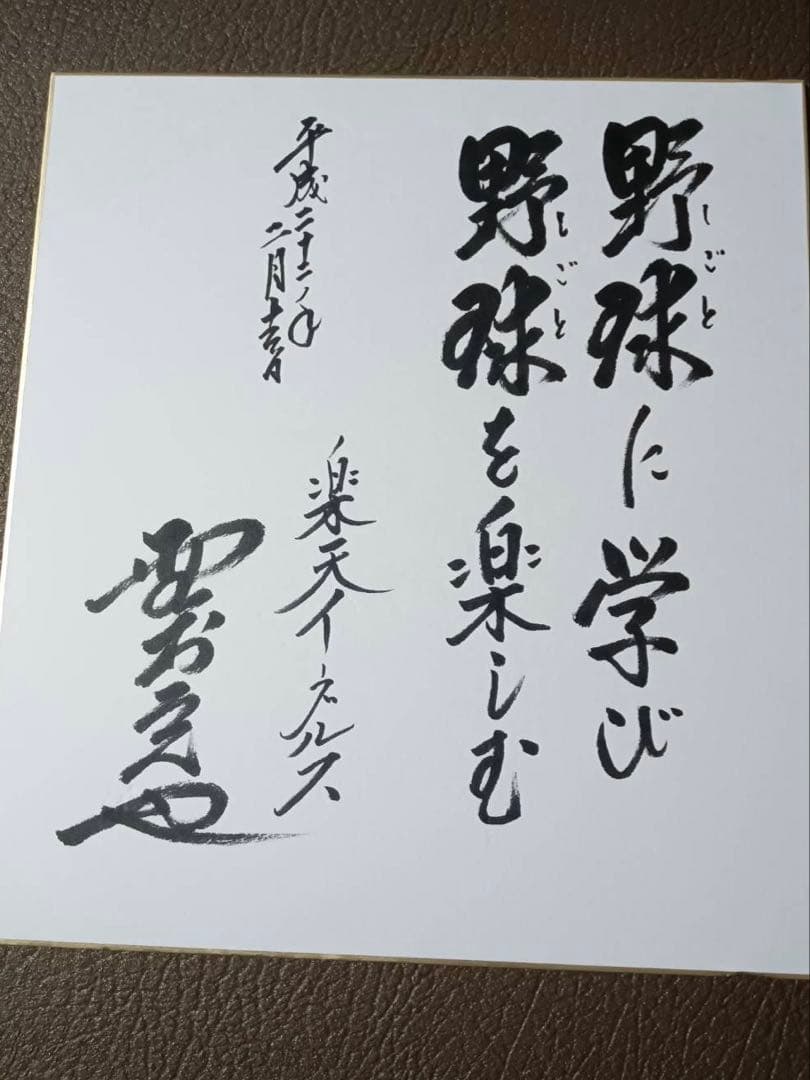 野球に学び
しごと
野球を楽しむ
しごと
平成二十二年
二月
楽天イーグルス
野村克也